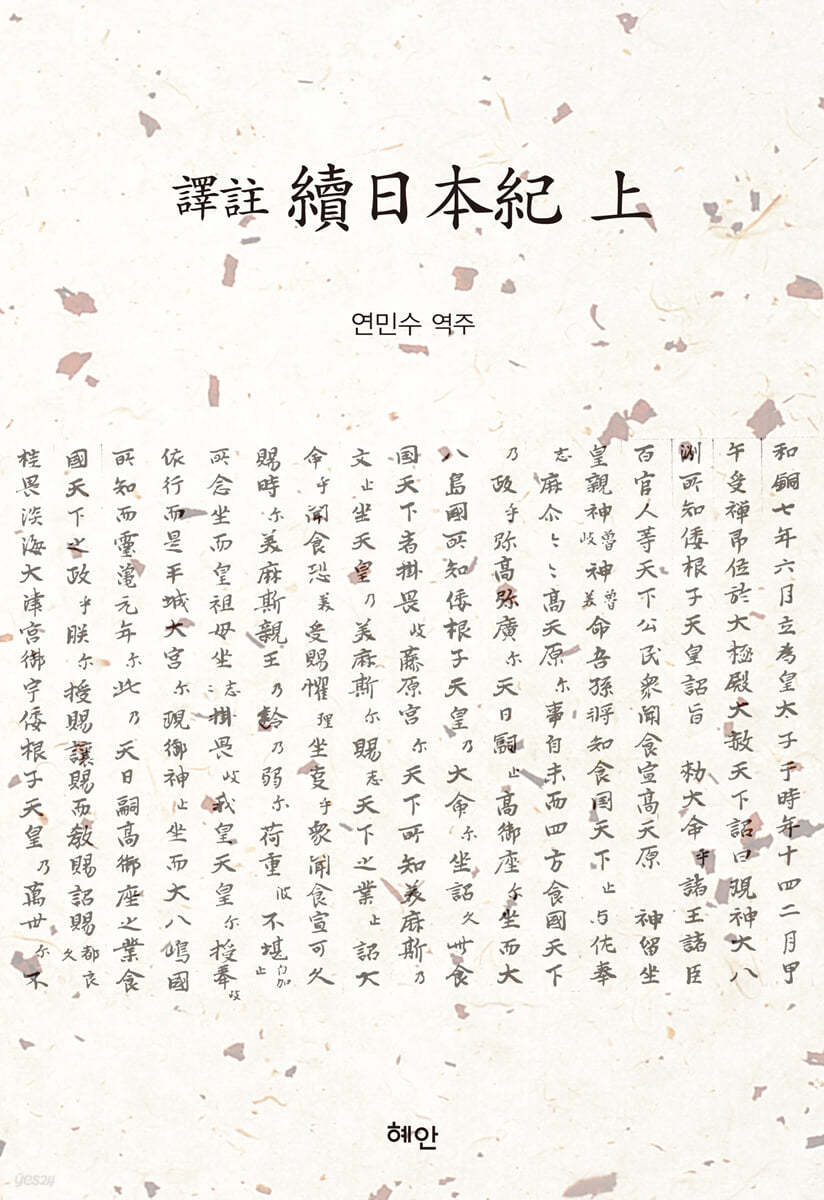 譯註 續日本紀 上
연민수 역주
和銅七年六月立為皇太子于時年十四二月甲
午受禪即位於大極殿大赦天下詔曰現神大八
洲所知倭根子天皇詔旨 勅大命乎諸王諸臣
百官人等天下公民衆聞食宣高天原 神留坐
皇親神魯岐神魯美命吾孫將知食国天下止与佐奉
志麻尓〻〻高天原尓事自未而四方食國天下
乃政乎弥高弥廣尓天日嗣止高御座尓坐而大
八島國所知倭根子天皇乃大命尓坐詔久此食
国天下者掛畏岐藤原宮尓天下所知美麻斯乃
父止坐天皇乃美麻斯尓賜志天下之業止詔大
命乎聞食恐美受賜懼理坐叓乎衆聞食宣可久
賜時尓美麻斯親王乃齡乃弱尓荷重波不堪自加止
所念坐而皇祖母坐志〻掛畏岐我皇天皇尓授奉岐
依行而是平城大宮尓現御神止坐而大八嶋國
所知而靈亀元年尓此乃天日嗣高御座之業食
國天下之政乎朕尓授賜讓賜而教賜詔賜都良久
桂畏淡海大津宮御宇倭根子天皇乃萬世尓不
혜안
yes24